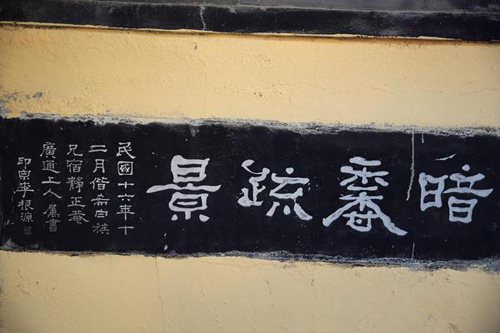 暗香疏景
民國十六年十
二月偕希白族
兄宿靜正菴
廣通上人屬書
印泉李根源